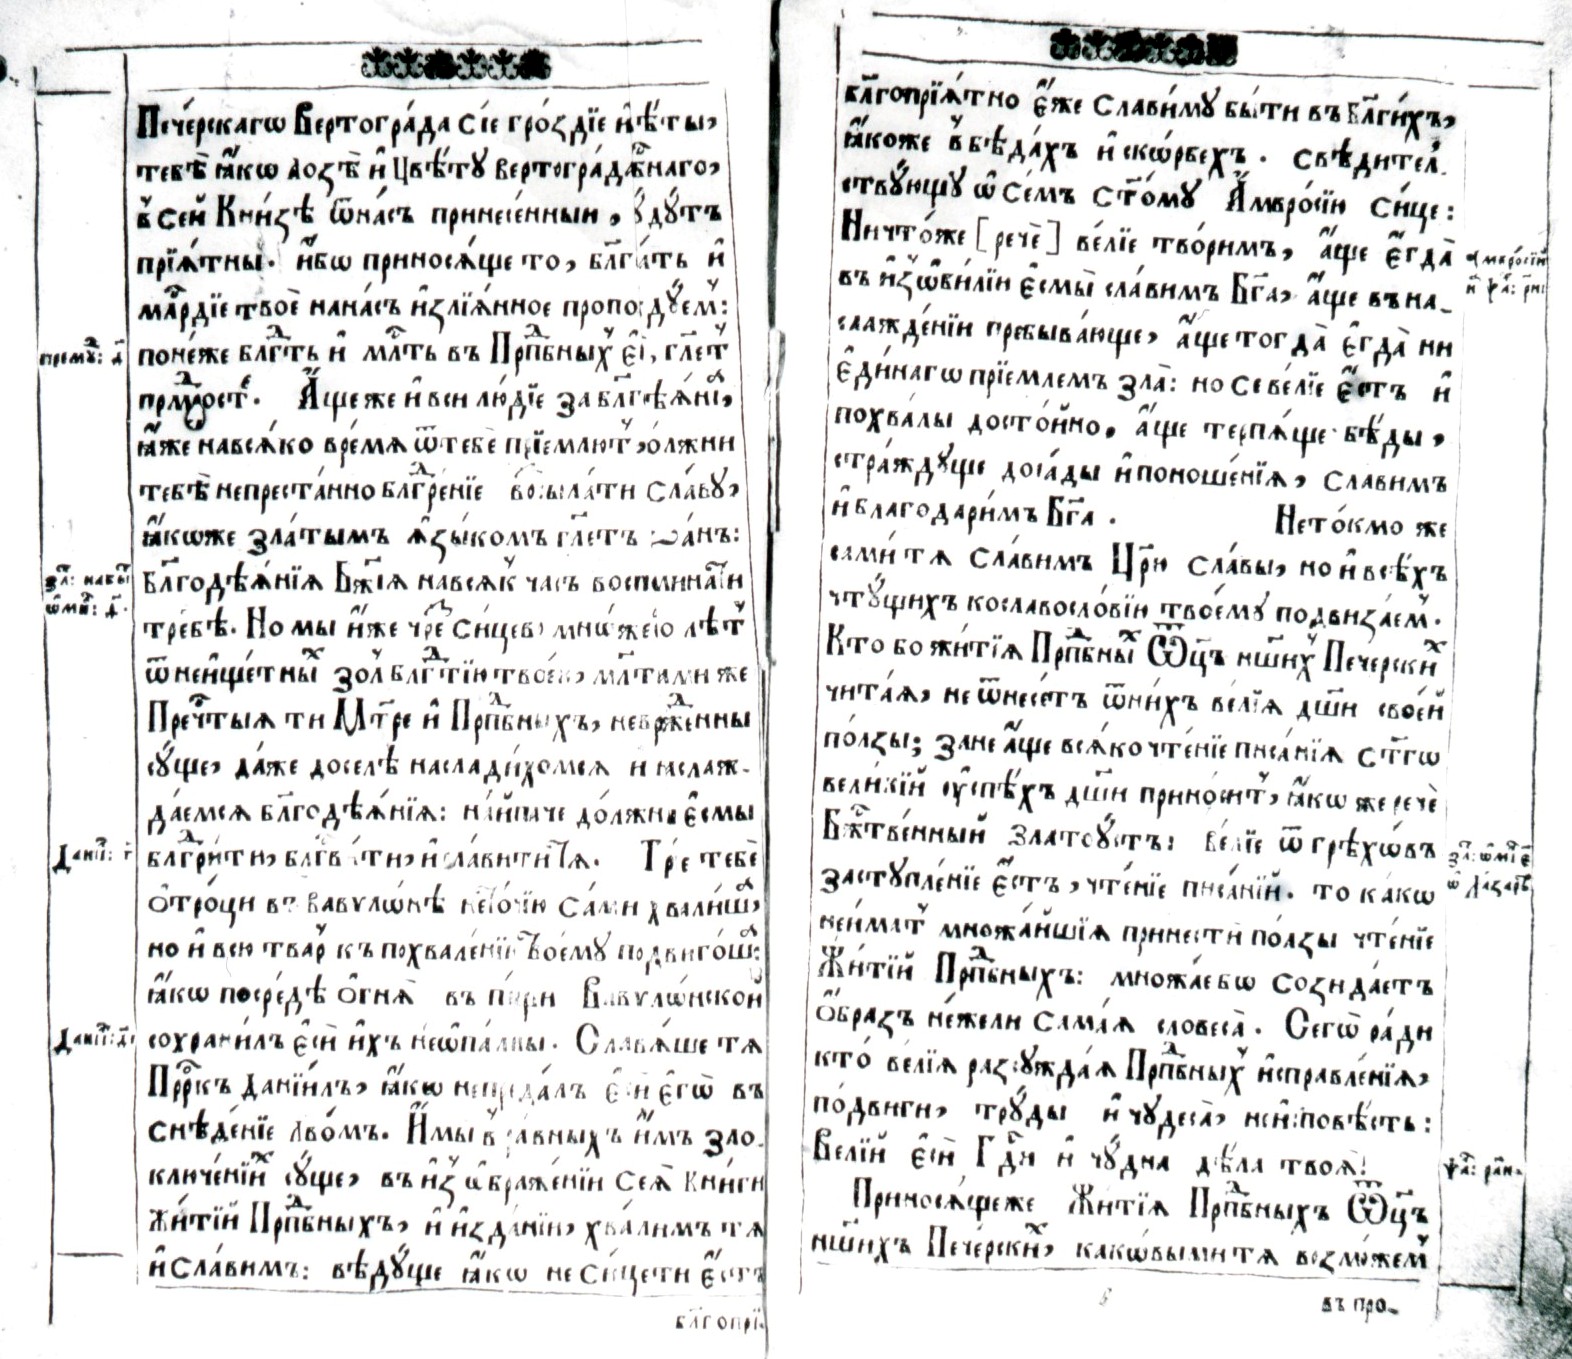 Пече́рскагѡ Вертогра́да сїе гро́здїе и҆ цвѣ́ты,
тебѣ̀ ꙗ҆́кѡ лозѣ̀ и҆ Цвѣ́тꙋ вертогра́дⷭнаго,
в̾ сей Кни́зѣ ѿна́съ принесе́нныи, бꙋ́дꙋтъ
прїѧ́тны. и҆́бѡ приносѧ́ще то, блг҃ода́ть и҆
млⷭ҇рдїе твоѐ нана́съ и҆злїѧ́нное
поне́же блгⷣть и҆ млⷭ҇ть въ Прпⷣбныхъ є҆гѡ̀, гл҃етъ
прмⷣрость. А҆́ще же и҆ вси лю́дїе за блг҃дѣѧ́нїѧ,
ꙗ҆́же навсѧ́ко вре́мѧ ѿтебѐ прїе́млютъ, до́лжни
тебѣ̀ непреста́нно блгⷣре́нїе возсыла́ти сла́вꙋ,
ꙗ҆́кѡже зла́тымъ ѧ҆зы́комъ гл҃етъ Іѡа́нъ:
Блг҃одѣѧ́нїѧ Бж҃їѧ навсѧ́къ часъ воспомина́ти
тре́бѣ. Но мы и҆́же чре́зъ си́цево мно́жество лѣ́тъ
ѿ неищетныхъ золъ блгⷣтїю твое́ю, млⷭ҇тими же
Пречⷭ҇тыѧ ти Мт҃ре и҆ Прпⷣбныхъ, невреже́нны
сꙋ́ще, да́же доселѣ наслади́хомсѧ и наслаж-
да́емсѧ блг҃одѣѧ́нїѧ: на́ипаче до́лжни є҆смы̀
блгⷣри́ти, блг҃ви́ти, и҆ сла́вити Тѧ. Трїе тебѐ
ѻ҆́троци въ Вавѵлѡ́нѣ не то́чїю са́ми хвали́ша,
но и҆ всю тва́рь къ похвале́нїю твоемꙋ̀ подвиго́ша:
ꙗ҆́кѡ посре́дѣ ѻ҆гнѧ̀ въ пещи Вавѵлѡ́нской
сохрани́лъ є҆сѝ и҆́хъ неѡ҆па́лны. Славѧ́ше тѧ
Прⷪ҇ркъ Данїи́лъ, ꙗ҆́кѡ непреда́лъ є҆сѝ є҆гѡ̀ въ
снѣде́нїе лво́мъ. И҆ мы в̾ ра́вныхъ и҆̀мъ зло-
ключе́нїихъ сꙋ́ще, въ и҆зѡбраже́нїи сеѧ̀ Кни́ги
Жи́тїй Прпⷣбныхъ, и҆ и҆зда́нїи, хва́лимъ тѧ
и҆ сла́вимъ: вѣ́дꙋще ꙗ҆́кѡ не си́це ти є҆́сть
блг҃опрї-
премꙋⷣ: д҃
Данїи́л: г҃
Данїи́л: д҃і
блг҃опрїѧ́тно є҆́же сла́вимꙋ бы́ти въ Блг҃и́хъ,
ꙗ҆́коже в̾ бѣда́хъ и҆ скѡ́рбехъ. свѣ́дител-
ствꙋ́ющꙋ ѡ҆ се́мъ ст҃о́мꙋ А҆мвро́сїю си́це:
Ничто́же [речѐ] ве́лїе тво́римъ, а҆́ще є҆гда̀
въ и҆зѡби́лїи є҆смы̀ сла́вимъ Бг҃а, а҆́ще въ на-
слажде́нїи пребыва́юще, а҆́ще тогда̀ є҆гда̀ ни
є҆ди́нагѡ прїе́млемъ зла̀: но се ве́лїе є҆́стъ и҆
похва́лы досто́йно, а҆́ще терпѧ́ще бѣ́ды,
стра́ждꙋще доса́ды и҆ поноше́нїѧ, сла́вимъ
и҆ благодари́мъ Бг҃а. Нето́кмо же
сами́ тѧ сла́вимъ Цр҃ю сла́вы, но и҆ всѣ́хъ
чтꙋ́щихъ кославосло́вїю твоемꙋ подвиза́емъ.
Кто бо жи́тїѧ Прпⷣбныхъ Ѿц҃ъ нш҃ихъ Пече́рскихъ
чита́ѧ, не ѿнесе́тъ ѿни́хъ ве́лїѧ дш҃и свое́й
по́лзы; зане а҆́ще всѧ́ко чте́нїе писа́нїѧ ст҃гѡ
вели́кїй оу҆спѣ́хъ дш҃и прино́ситъ, ꙗ҆́кѡ же речѐ
Бжⷭ҇тве́нный Златоꙋ́стъ: ве́лїе ѿ грѣхѡ́въ
заступле́нїе є҆́стъ, чте́нїе писа́нїй. то ка́кѡ
неи́мать множа́йшїѧ принестѝ по́лзы чте́нїе
Жи́тїй Прпⷣбныхъ: множа́е бѡ созида́етъ
ѻ҆́бразъ не́жели сама́ѧ словеса̀. Сегѡ̀ ра́ди
кто́ ве́лїѧ разсꙋжда́ѧ Прпⷣбныхъ и҆справле́нїѧ,
по́двиги, трꙋды́ и҆ чꙋдеса̀, неи҆споvѣ́сть:
Ве́лїй є҆сѝ Гдⷭ҇и и҆ чꙋ́дна дѣ́ла твоѧ̀!
Приносѧ́ще же Жи́тїѧ Прпⷣбныхъ Ѿц҃ъ
нш҃ихъ Пече́рскихъ, какѡ́выми тѧ возмо́жемъ
въ про-
Амвро́сїй
ѱⷧ҇а: рн҃і
зл҃: ѡмїⷧ: є҃
ѡ Ла́зарѣ